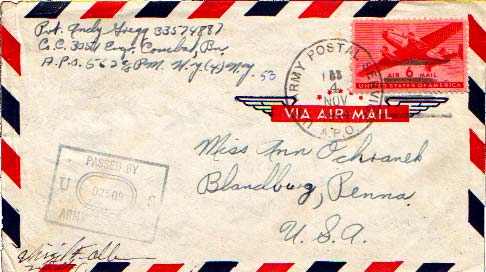 Pvt. Andy Gregg 33574887
Co. C. 305th Engr. Combat, Bn.
A.P.O. 562 % P.M. N.Y. N.Y. 53
U.S. ARMY POSTAL SERVICE
4
NOV
A.P.O.
6
AIR MAIL
UNITED STATES OF AMERICA
VIA AIR MAIL
PASSED BY
U S
ARMY
Miss Ann Ochranek
Blandburg, Penna.
U. S. A.